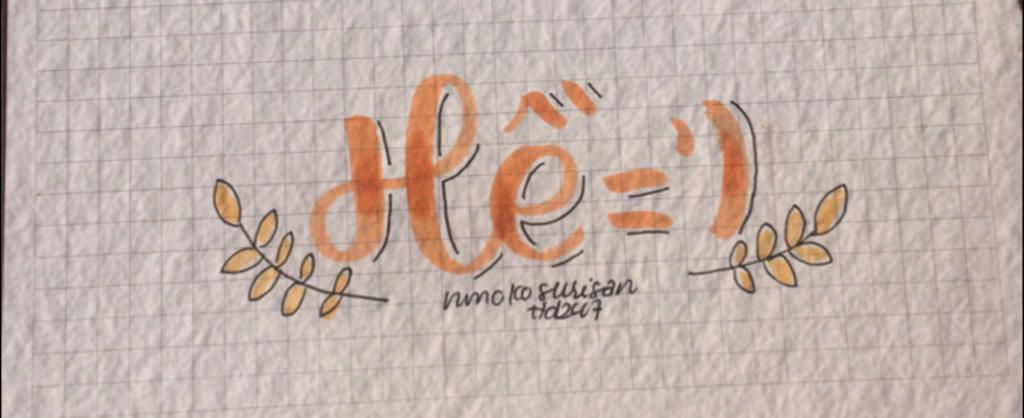 Hề =')
nmokosurisan
tld2k7